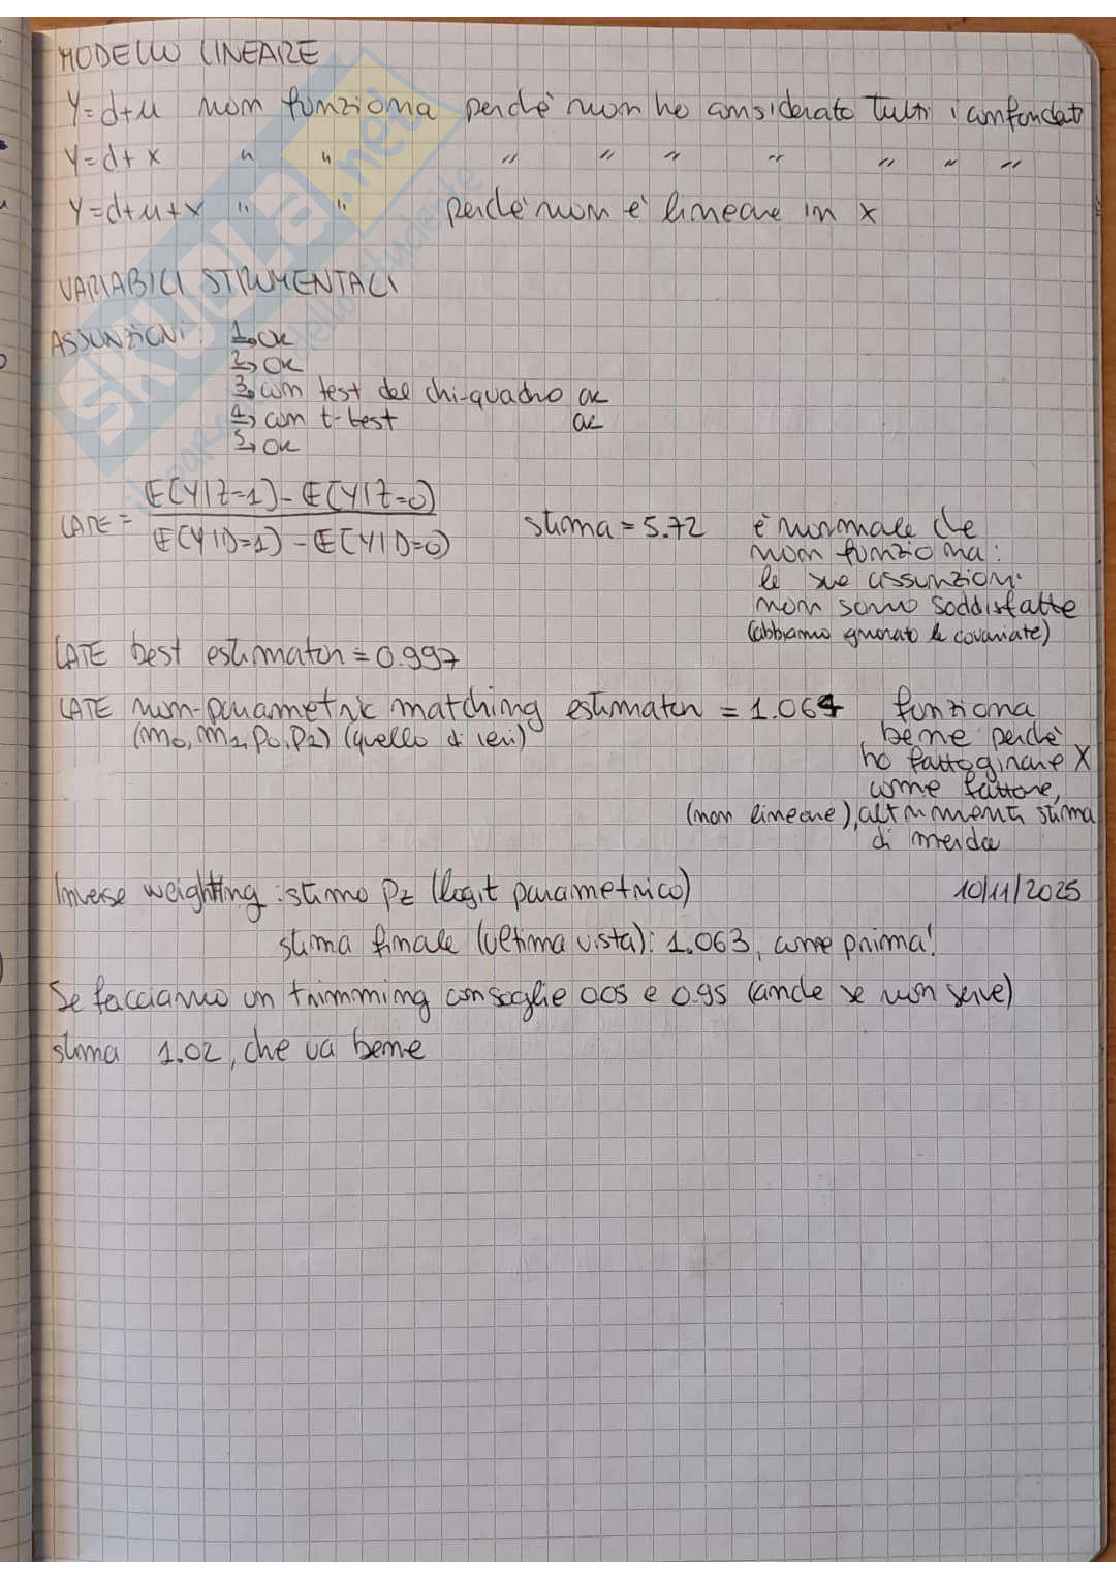 MODELLO LINEARE
Y=d+u non funziona perché non ho considerato tutti i confondati
Y=d+x " " " " " " " " "
Y=d+u+x " " perché non è lineare in x
VARIABILI STRUMENTALI
ASSUNZIONI: 1, OK
2, OK
3, con test del chi-quadro OK
4, con t-test OK
5, OK
LATE = E[Y|Z=1] - E[Y|Z=0] / E[Y|D=1] - E[Y|D=0] stima = 5.72 è normale che
non funziona:
le sue assunzioni
non sono soddisfatte
(abbiamo ignorato le covariate)
LATE best estimator = 0.997
LATE non-parametric matching estimator = 1.064 funziona
(m0, m1, p0, p1) (quello di ieri) bene perché
ho fatto girare X
come fattore,
(non lineare), altrimenti stima
di merda
Inverse weighting: stimo pz (logit parametrico) 10/11/2025
stima finale (ultima vista): 1.063, come prima!
Se facciamo un trimming con soglie 0.05 e 0.95 (anche se non serve)
stima 1.02, che va bene
SKUOLA.net